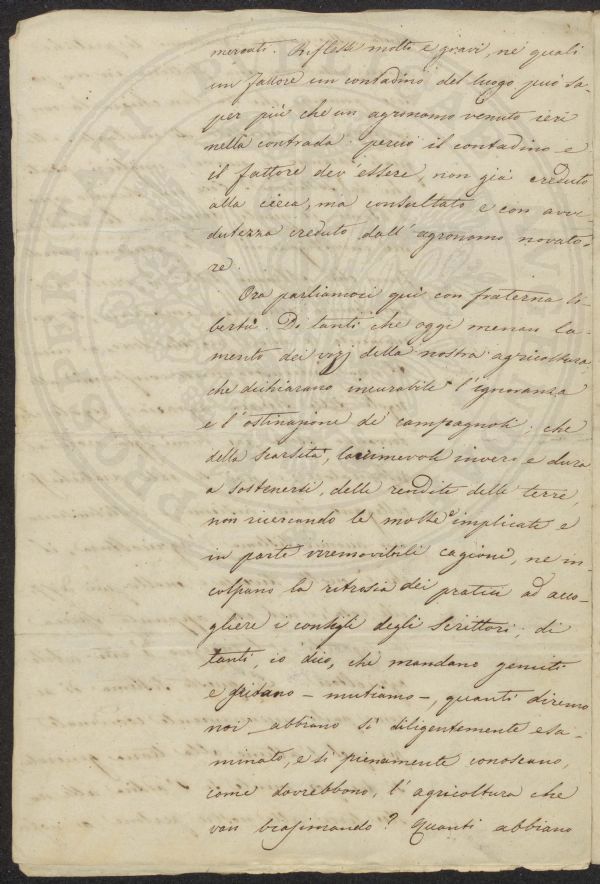 mercati. Riflessi molti e gravi, ne' quali
un fattore un contadino del luogo può sa-
per più che un agronomo venuto ieri
nella contrada: perciò il contadino e
il fattore dev'essere, non già creduto
alla cieca, ma consultato e con avve-
dutezza creduto dall'agronomo novato-
re.
Ora parliamoci quì con fraterna li-
bertà. Di tanti che oggi menan la-
mento dei vizj della nostra agricoltura,
che dichiarano incurabile l'ignoranza
e l'ostinazione de' campagnoli; che
della scarsità, lacrimevole invero e dura
a sostenersi, delle rendite delle terre,
non ricercando le molte implicate e
in parte irremovibili cagioni, ne in-
colpano la ritrosia dei pratici ad acco-
gliere i consigli degli Scrittori; di
tanti, io dico, che mandano gemiti
e gridano - mutiamo -, quanti diremo
noi abbiano sì diligentemente esa-
minato, e sì pienamente conoscano,
come dovrebbono, l'agricoltura che
van biasimando? Quanti abbiano
PROSPERITATI PUBLICAE